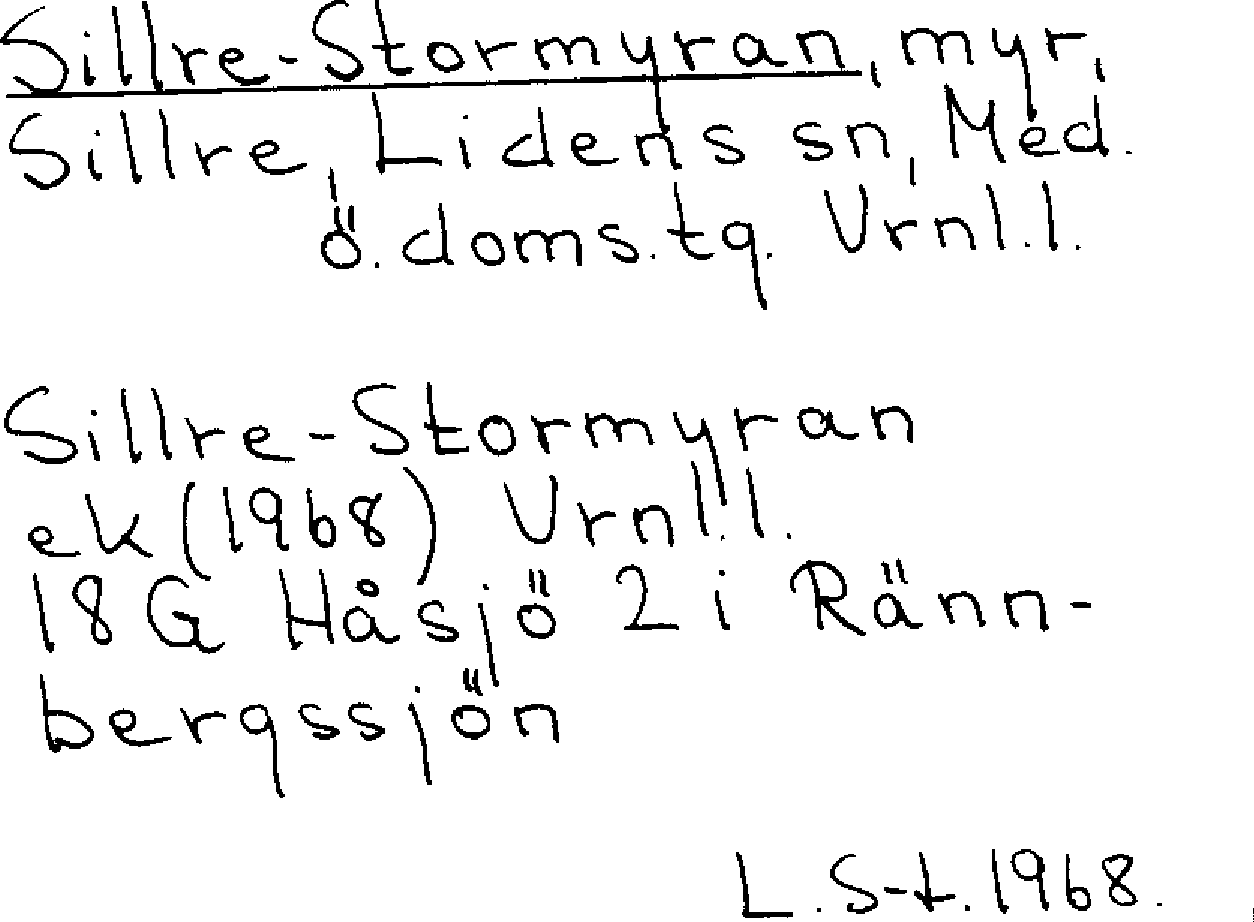 Sillre-Stormyran, myr,
Sillre, Lidens sn, Med.
ö. doms.tg. Vrnl.l.
Sillre-Stormyran
ek (1968) Vrnl.l.
18G Håsjö 2 i Ränn-
bergssjön
L. S-t. 1968.